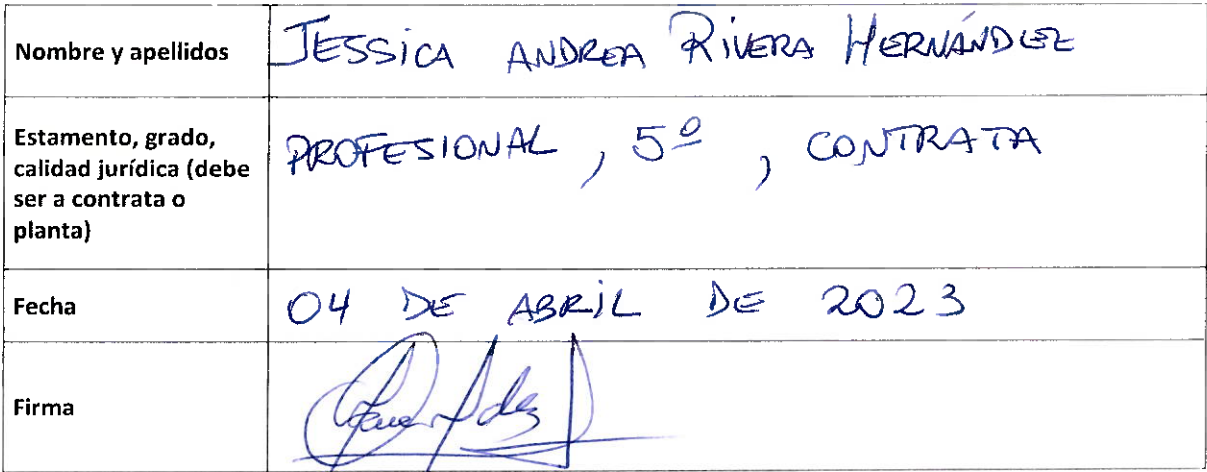 Nombre y apellidos
JESSICA ANDREA RIVERA HERNÁNDEZ
Estamento, grado,
calidad jurídica (debe
ser a contrata o
planta)
PROFESIONAL, 5º, CONTRATA
Fecha
04 DE ABRIL DE 2023
Firma